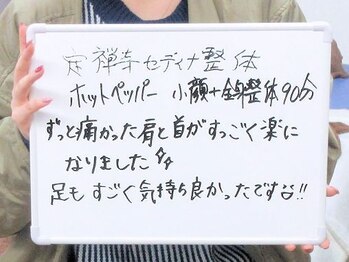 定禅寺セディナ整体
ホットペッパー 小顔+全身整体90分
ずっと痛かった肩と首がすっごく楽に
なりました
足もすごく気持ち良かったです!!